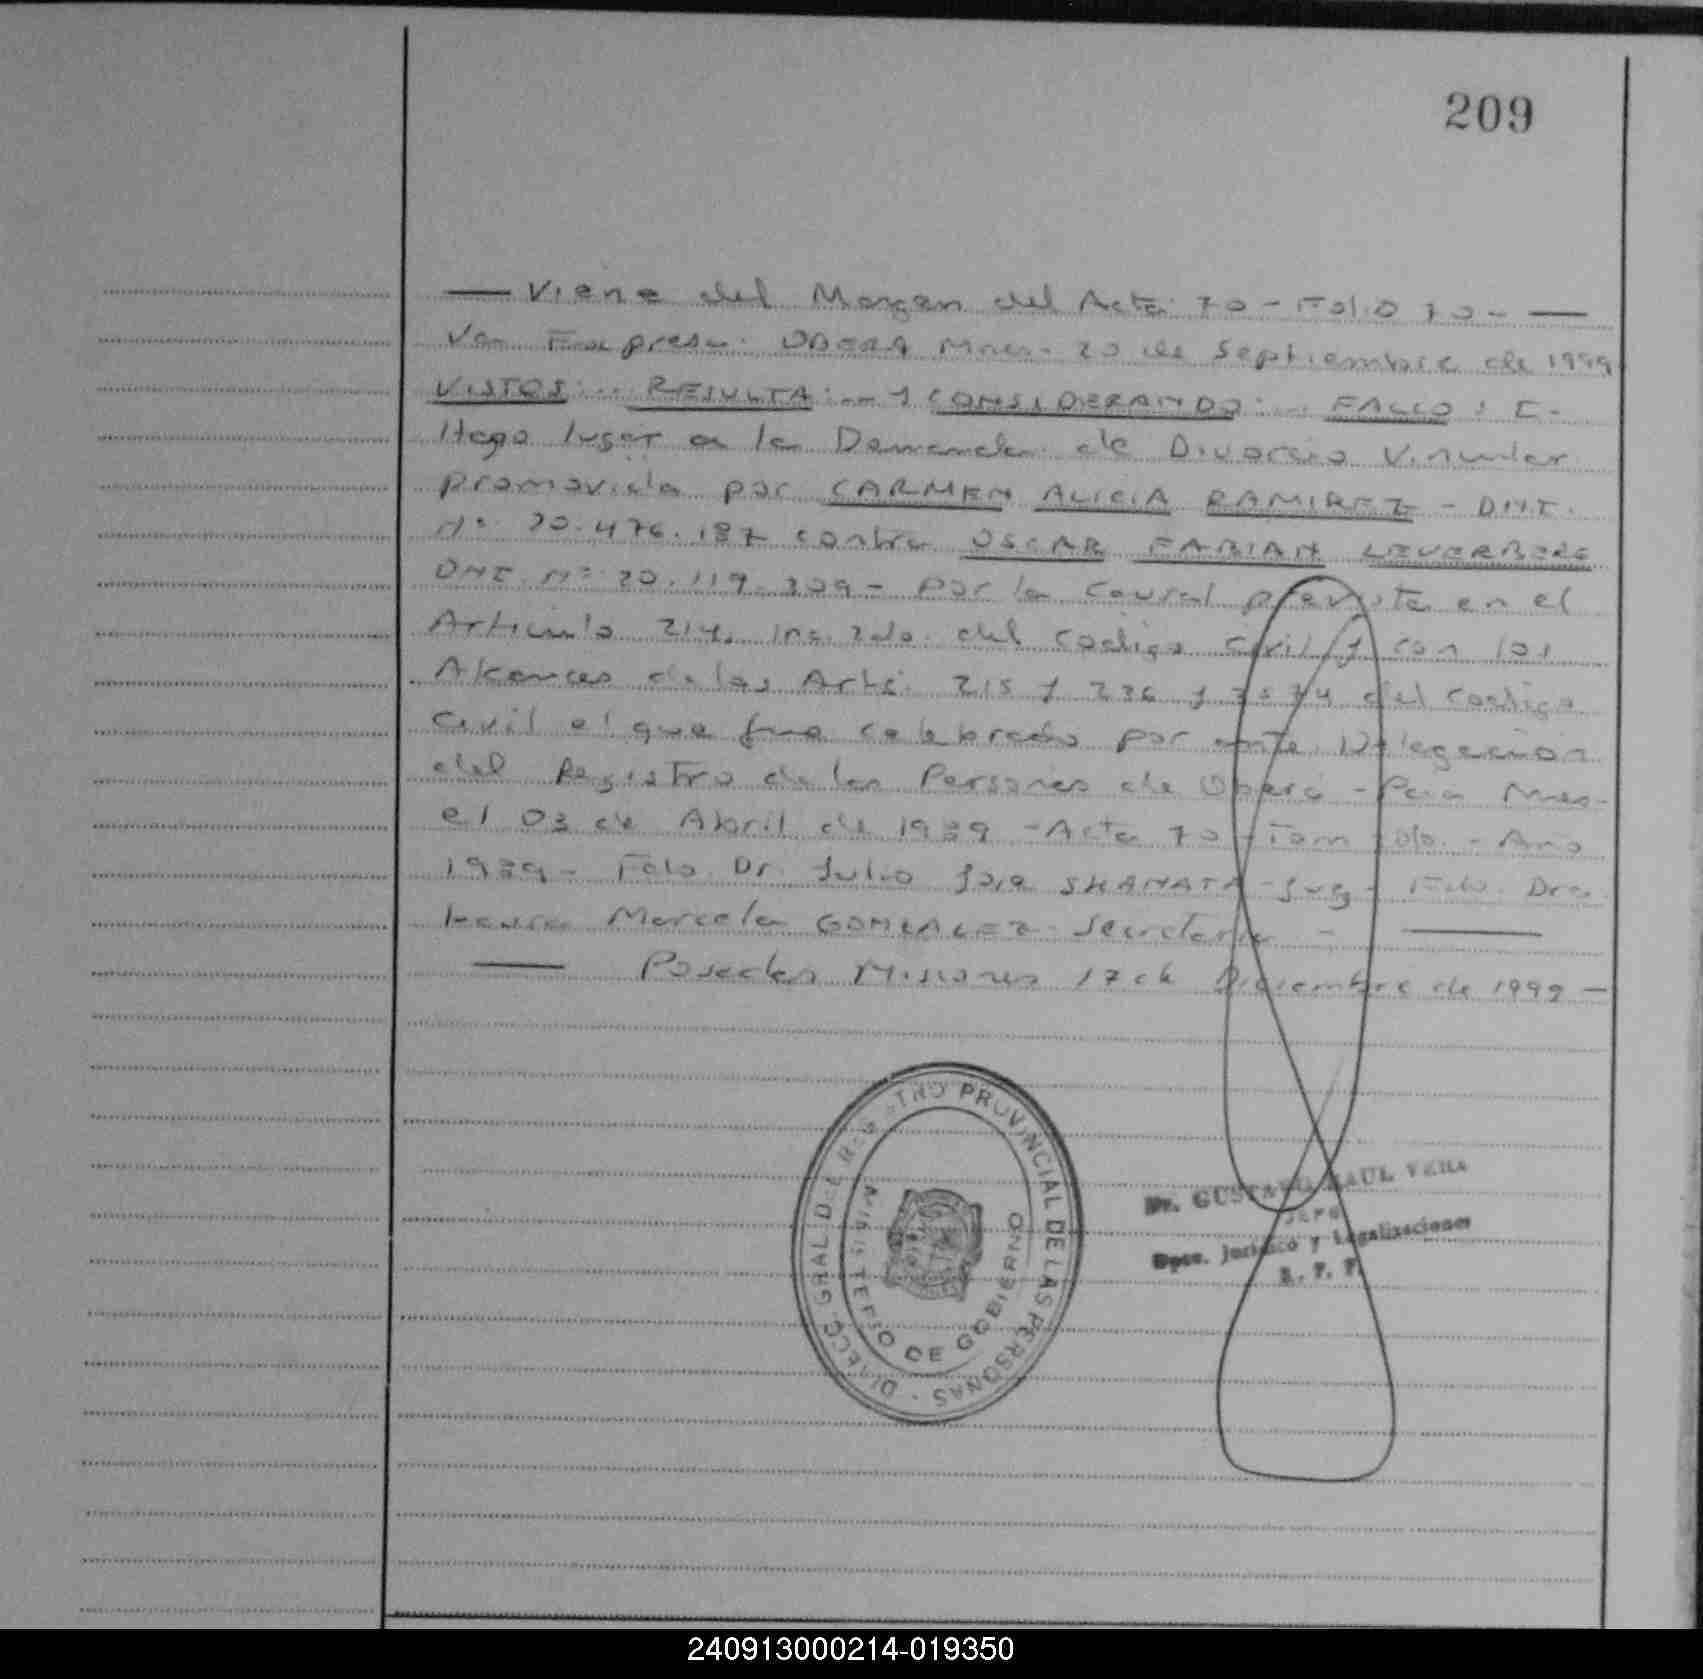 209
— Viene del Margen del Acta 70 - Folio 70 - —
Expresa. OBERA Mnes. 20 de Septiembre de 1999
VISTOS: ... RESULTA: ... y CONSIDERANDO: ... FALLO: I.-
Hago lugar a la Demanda de Divorcio Vincular
promovida por CARMEN ALICIA RAMIREZ - DNI.
Nº 20.476.187 contra OSCAR FABIAN LEVERBERG
DNI Nº 20.119.309 - Por la Causal prevista en el
Articulo 214, Inc. 2do. del Codigo Civil y con los
Alcances de las Arts. 215 y 236 y 3574 del Codigo
Civil el que fue celebrado por ante Delegacion
del Registro de las Personas de Oberá - Pcia Mnes-
el 03 de Abril de 1989 - Acta 70 - Tom - Año
1989 - Fdo. Dr. Julio Jose SKANATA - Juez - Fdo. Dra.
Laura Marcela GONZALEZ - Secretaria - —
— Posadas Misiones 17 de Diciembre de 1999 —
DIRECC. GRAL. DEL REGISTRO PROVINCIAL DE LAS PERSONAS
MINISTERIO DE GOBIERNO
Dr. GUSTAVO RAUL VERA
Jefe
Dpto. Juridico y Legalizaciones
R. P. P.
240913000214-019350